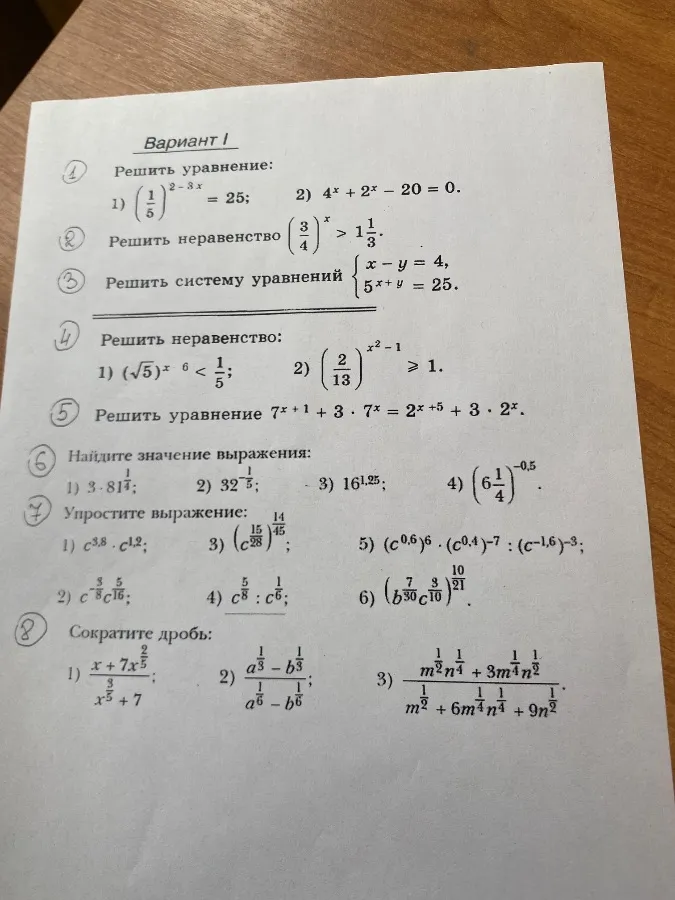 Вариант I
① Решить уравнение:
1) (1/5)^(2 - 3x) = 25; 2) 4^x + 2^x - 20 = 0.
② Решить неравенство (3/4)^x > 1 1/3.
③ Решить систему уравнений { x - y = 4,
5^(x + y) = 25.
④ Решить неравенство:
1) (√5)^(x 6) < 1/5; 2) (2/13)^(x² - 1) ⩾ 1.
⑤ Решить уравнение 7^(x + 1) + 3 · 7^x = 2^(x + 5) + 3 · 2^x.
⑥ Найдите значение выражения:
1) 3 · 81^(1/4); 2) 32^(-1/5); 3) 16^(1,25); 4) (6 1/4)^(-0,5).
⑦ Упростите выражение:
1) c^(3,8) · c^(1,2); 3) (c^(15/28))^(14/45); 5) (c^(0,6))^6 · (c^(0,4))^(-7) : (c^(-1,6))^(-3);
2) c^(-3/8) c^(5/16); 4) c^(5/8) : c^(1/6); 6) (b^(7/30) c^(3/10))^(10/21).
⑧ Сократите дробь:
1) (x + 7x^(2/5)) / (x^(3/5) + 7); 2) (a^(1/3) - b^(1/3)) / (a^(1/6) - b^(1/6)); 3) (m^(1/2) n^(1/4) + 3m^(1/4) n^(1/2)) / (m^(1/2) + 6m^(1/4) n^(1/4) + 9n^(1/2)).